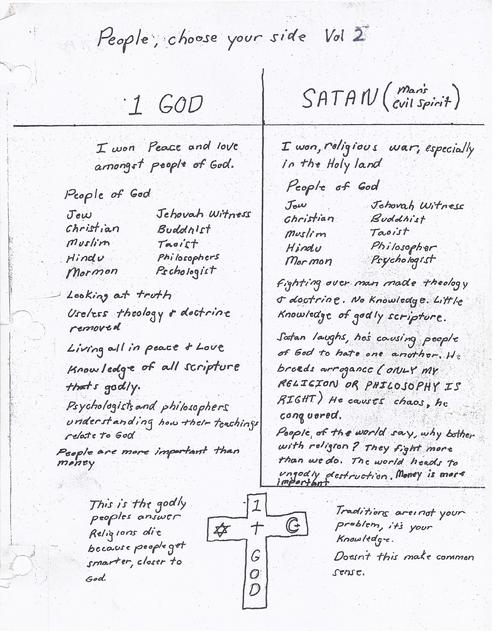 People, choose your side Vol 2
1 GOD
I won Peace and love
amongst people of God.
People of God
Jew Jehovah Witness
Christian Buddhist
Muslim Taoist
Hindu Philosophers
Mormon Pschologist
Looking at truth
Useless theology & doctrine
removed
Living all in peace & Love
Knowledge of all scripture
thats godly.
Psychologists and philosophers
understanding how their teachings
relate to God
People are more important than
money
SATAN (man's
evil spirit)
I won, religious war, especially
in the Holy land
People of God
Jew Jehovah Witness
Christian Buddhist
Muslim Taoist
Hindu Philosopher
Mormon Psychologist
Fighting over man made theology
& doctrine. No Knowledge. Little
Knowledge of godly scripture.
Satan laughs, he's causing people
of God to hate one another. He
breeds arrogance (ONLY MY
RELIGION OR PHILOSOPHY IS
RIGHT) He causes chaos, he
conquered.
People of the world say, why bother
with religion? They fight more
than we do. The world heads to
ungodly destruction. Money is more
important
This is the godly
peoples answer
Religions die
because people get
smarter, closer to
God.
1
GOD
Traditions are not your
problem, it's your
Knowledge.
Doesn't this make common
sense.